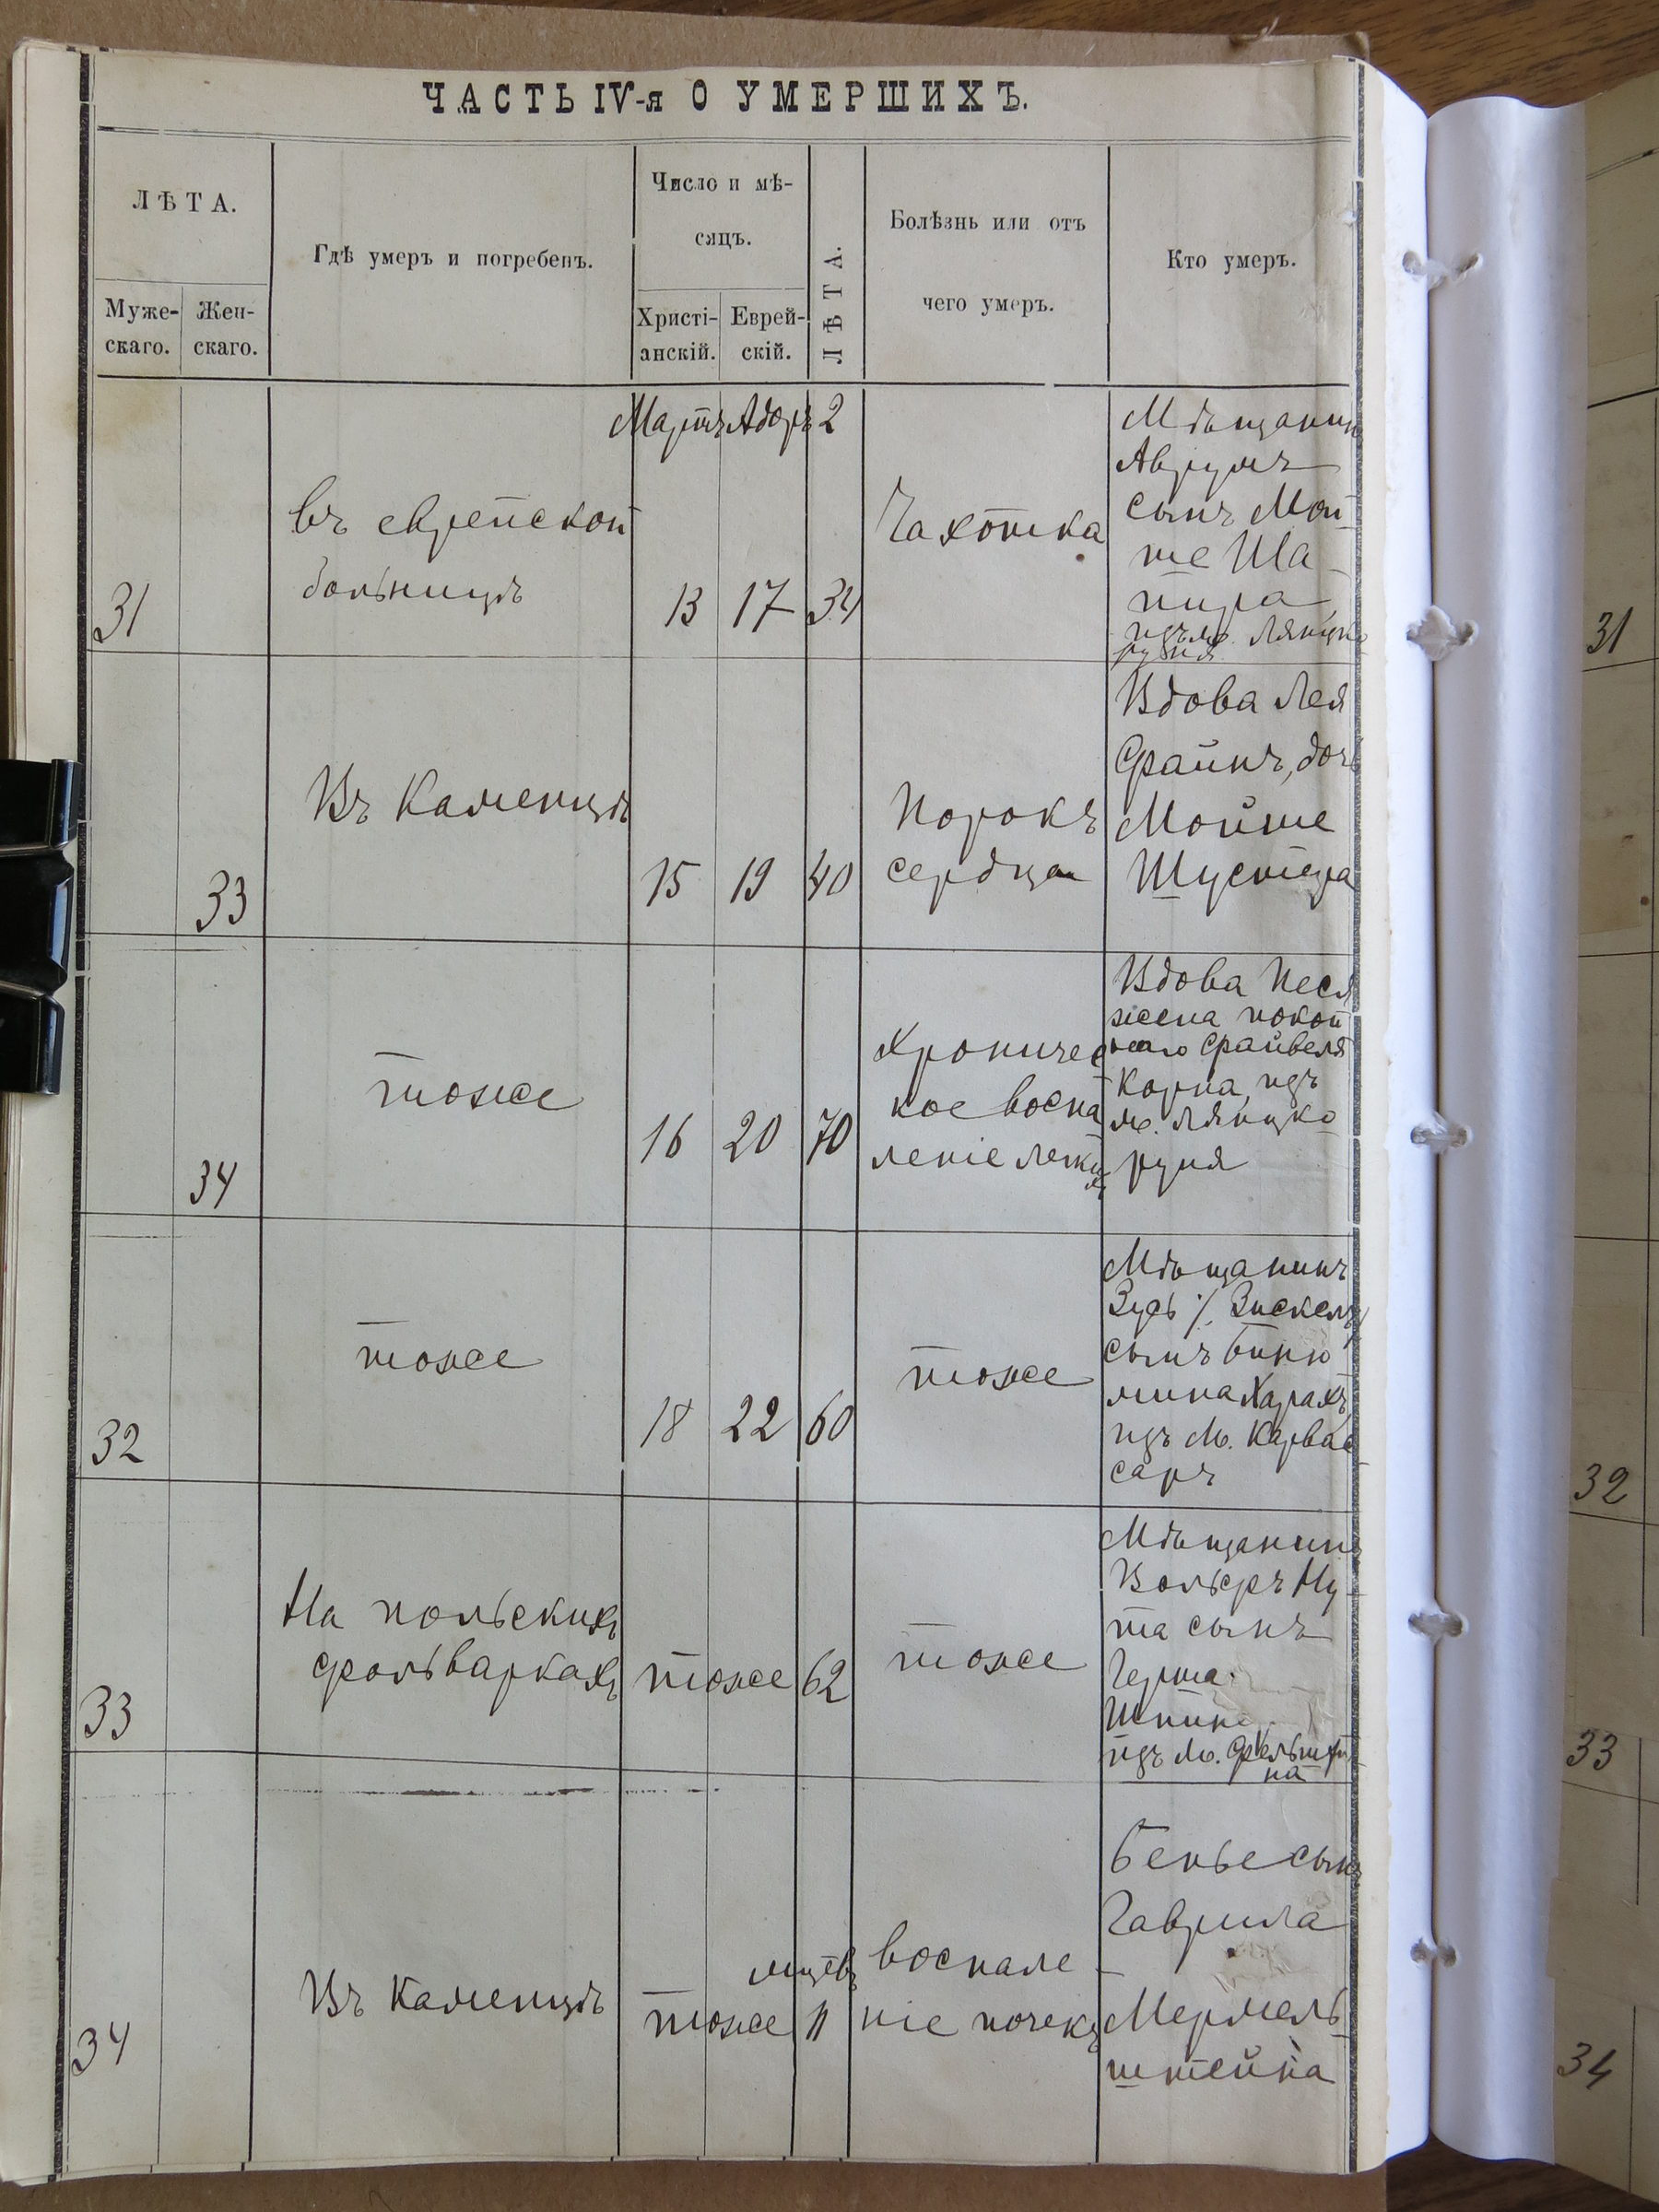 ЧАСТЬ IV-я О УМЕРШИХЪ.
ЛѢТА.
Муже-
скаго.
Жен-
скаго.
Гдѣ умеръ и погребенъ.
Число и мѣ-
сяцъ.
Христі-
анскій.
Еврей-
скій.
ЛѢТА.
Болѣзнь или отъ
чего умеръ.
Кто умеръ.
Мартъ Адоръ 2
31
въ еврейской
больницѣ
13 17 34
Чахотка
Мѣщанинъ
Аврумъ
сынъ Мой-
ше Ша-
пира
изъ м. Лянцко
руня
33
Въ Каменцѣ
15 19 40
Порокъ
сердца
Вдова Лея
Файнъ, дочь
Мойше
Шустера
34
тоже
16 20 70
Хроничес
кое воспа
леніе легкихъ
Вдова Песя
жена покой
наго Файвеля
Корна, изъ
м. Лянцко
руня
32
тоже
18 22 60
тоже
Мѣщанинъ
Зусь /Зискель/
сынъ Биню
мина Харахъ,
изъ м. Карвас
саръ
33
На польскихъ
фольваркахъ
тоже 62
тоже
Мѣщанинъ
Вольфъ Ну-
та сынъ
Герш
изъ м. Фельшти
на
34
Въ Каменцѣ
мцевъ
тоже 11
воспале-
ніе почекъ
Бенье сынъ
Гаврила
Мермель-
штейна
31
32
33
34